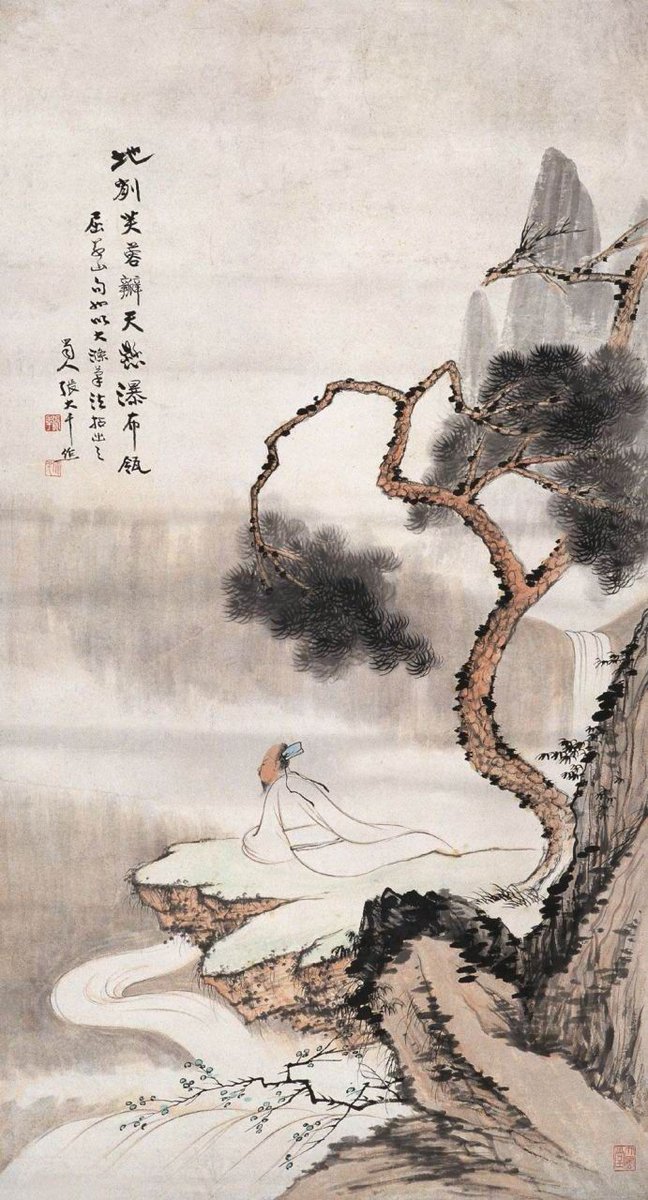 地削芙蓉瓣天懸瀑布瓴
屈翁山句以大滌筆法拈出之
蜀人張大千作